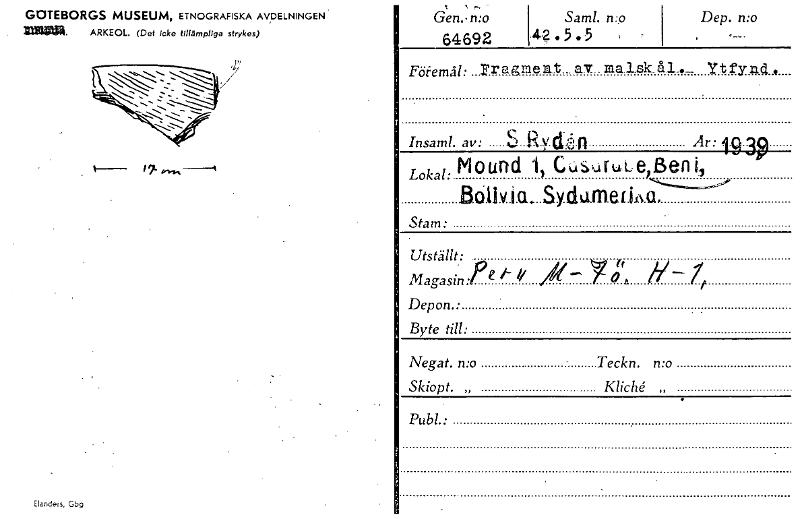 GÖTEBORGS MUSEUM, ETNOGRAFISKA AVDELNINGEN
ARKEOL. (Det icke tillämpliga strykes)
17 cm
Elanders, Gbg
Gen. n:o Saml. n:o Dep. n:o
64692 42.5.5
Föremål: Fragment av malskål. Ytfynd.
Insaml. av: S Rydén År: 1939
Lokal: Mound 1, Casarabe, Beni,
Bolivia. Sydamerika.
Stam:
Utställt:
Magasin: Peru M-7ö. H-1,
Depon.:
Byte till:
Negat. n:o Teckn. n:o
Skiopt. „ Kliché „
Publ.: